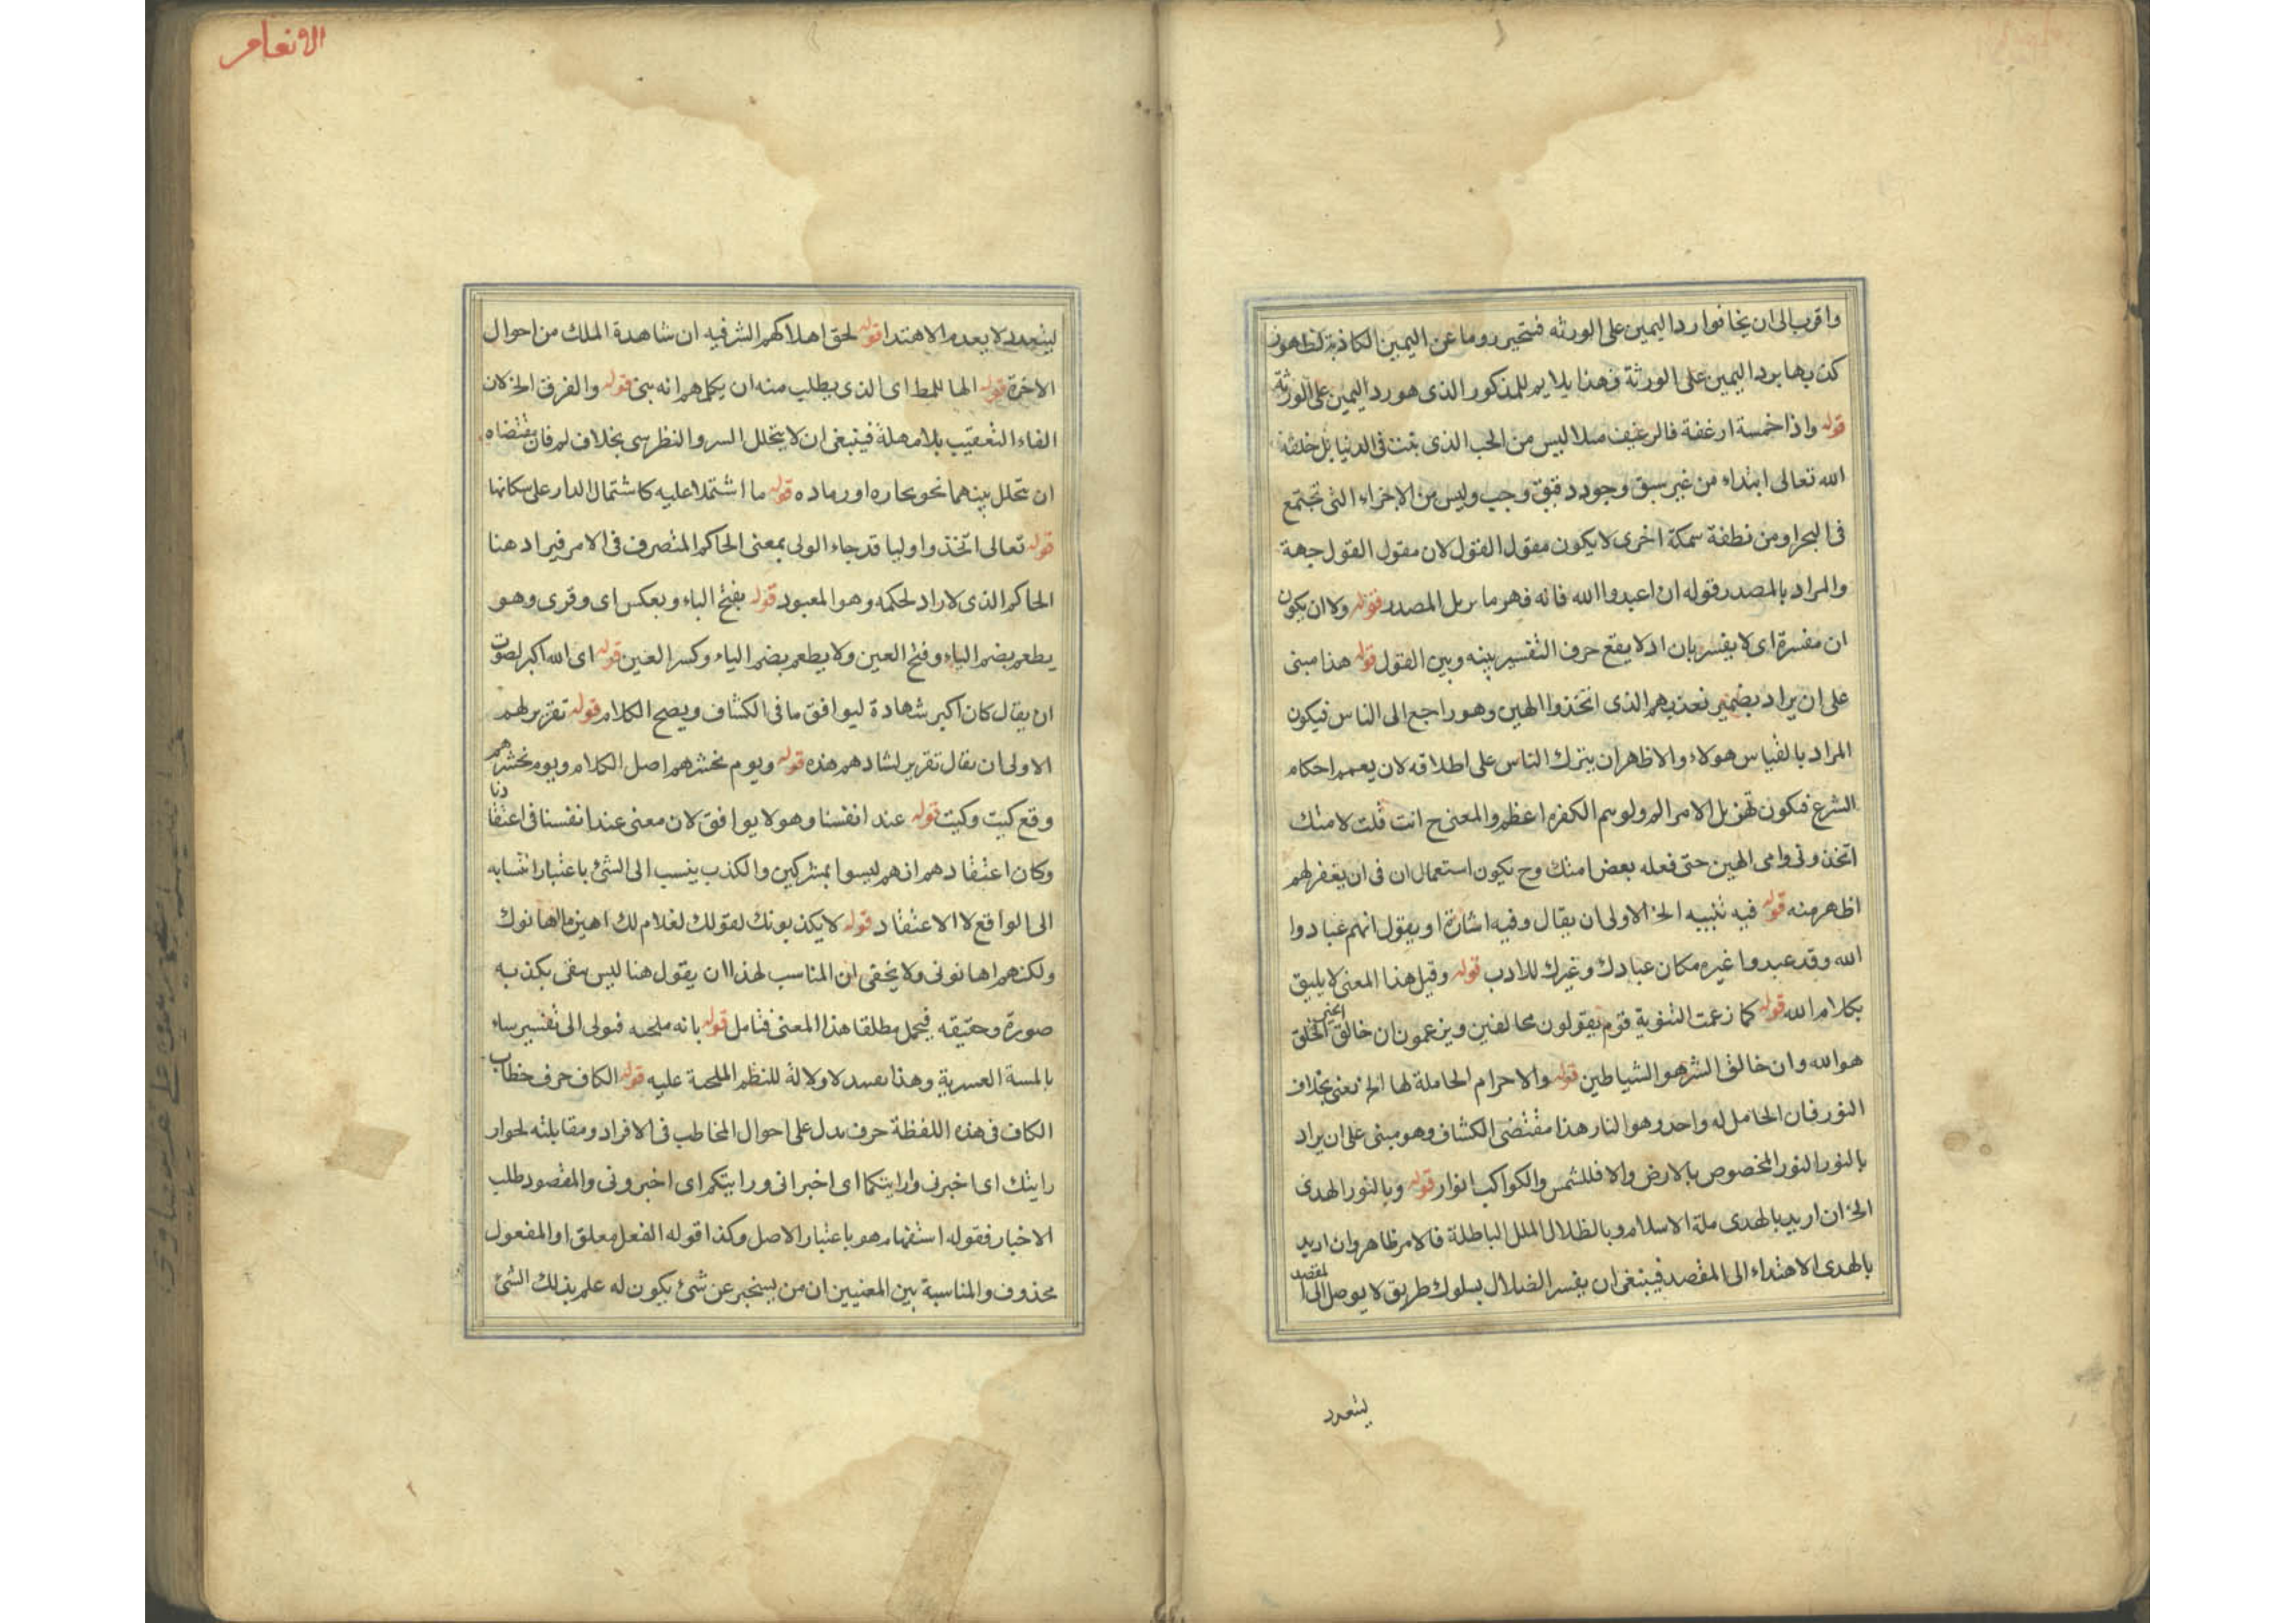 واقرب الى ان يخافوا رد اليمين على الورثه فتحير روما عن اليمين الكاذبة لظهور
كذبها برد اليمين على الورثة فهذا يلايم للمذكور الذى هورد اليمين على الورثة
قوله واذا خمسة ارغفة فالرغيف مثلا ليس من الحب الذى ينبت فى الدنيا بل خلقه
الله تعالى ابتداء من غير سبق وجود دقيق وحب وليس من الاجزاء التى تجتمع
فى البحر او من نطفة سمكة اخرى لا يكون مقول القول لان مقول القول جهة
والمراد بالمصدر قوله ان اعبدوا الله فانه فهو ما يربل المصدر قوله ولا ان يكون
ان مفسرة اى لا يفسر بان اد لا يقع حرف التفسير بينه وبين القول قوله هذا مبنى
على ان يراد بضمير تعذبهم الذى اتخذوا الهين وهو راجع الى الناس فيكون
المراد بالقياس هولاء والاظهر ان يترك الناس على اطلاقه لان يعمم احكام
الشرع فيكون تهزيل الامر المولوسم الكفره اعظم والمعنى ح انت قلت لامتك
اتخذونى وامى الهين حتى فعله بعض امتك وح يكون استعمال ان فى ان يغفر لهم
اظهر منه قوله فيه تنبيه الخ الاولى ان يقال وفيه اشارة او يقول انهم عبادوا
الله وقد عبدوا غيره مكان عبادك وغيرك للادب قوله وقيل هذا المعنى لا يليق
بكلام الله قوله كما زعمت الثنوية قوم يقولون مخالفين ويزعمون ان خالق الخير الخلق
هو الله وان خالق الشر هو الشياطين قوله والاجرام الحاملة لها الخ يعنى بخلاف
النور فان الحامل له واحد وهو النار هذا مقتضى الكشاف وهو مبنى على ان يراد
بالنور النور المخصوص بالارض والا فللشمس والكواكب انوار قوله وبالنور الهدى
الخ ان اريد بالهدى ملة الاسلام وبالظلال الملل الباطلة فالامر ظاهر وان اريد
بالهدى الاهتداء الى المقصد فينبغى ان يفسر الضلال بسلوك طريق لا يوصل الى المقصد
يتعدد
الانعام
ليتعدد لا يعدم الاهتدا قوله لحق اهلاكهم الشر فيه ان شاهدة الملك من احوال
الاخرة قوله الها للمط اى الذى يطلب منه ان يكلمهم انه بنى قوله والفرق الخ لان
الفاء التعقيب بلا مهلة فينبغى ان لا يتخلل السر والنظر سى بخلاف لم فان مقتضاه
ان تحلل بينهما نحو بحاره اور ماده قوله ما اشتملا عليه كاشتمال الدار على سكانها
قوله تعالى اتخذوا وليا قد جاء الولى بمعنى الحاكم المتصرف فى الامر فيراد هنا
الحاكم الذى لا راد لحكمه وهو المعبود قوله بفتح الياء وبعكس اى وقرى وهو
يطعم بضم الياء وفتح العين ولا يطعم بضم الياء وكسر العين قوله اى الله اكبر لصوت
ان يقال كان اكبر شهادة ليوافق ما فى الكشاف ويصح الكلام قوله تقرير لهم
الاولى ان يقال تقرير لشادهم هذه قوله ويوم نحشرهم اصل الكلام ويوم نحشرهم
وقع كيت وكيت قوله عند انفسنا وهو لا يوافق لان معنى عند انفسنا فى اعتقادنا
وكان اعتقادهم انهم ليسوا بمشركين والكذب ينسب الى الشئ باعتبار انتسابه
الى الواقع لا الاعتقاد قوله لا يكذبونك لقولك لغلام لك اهين ما اهانوك
ولكنهم اهانونى ولا يخفى ان المناسب لهذا ان يقول هنا ليس ينفى بكذبه
صورة وحقيقه فيحمل مطلقا هذا المعنى فتامل قوله بانه ملحمه فيولى الى تفسير ساء
بالمسة العسرية وهذا يفسد لاولالة للنظم الملحمة عليه قوله الكاف حرف خطاب
الكاف فى هذه اللفظة حرف يدل على احوال المخاطب فى الافراد ومقابلته لحوار
رايتك اى اخبرنى وارايتكما اى اخبرانى ورايتكم اى اخبرونى والمقصود طلب
الاخبار فقوله استفهام هو باعتبار الاصل وكذا قوله الفعل معلق او المفعول
محذوف والمناسبة بين المعنيين ان من يستخبر عن شئ يكون له علم بذلك الشئ